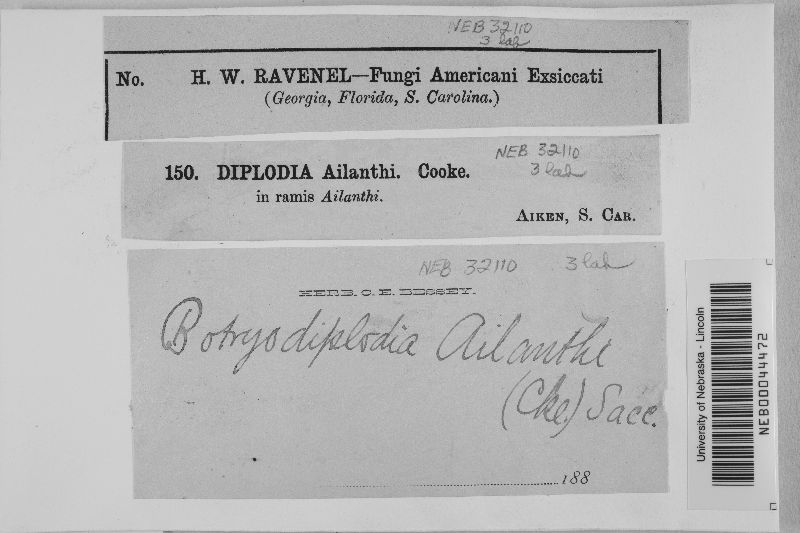 NEB 32110
3 lab
No. H. W. RAVENEL—Fungi Americani Exsiccati
(Georgia, Florida, S. Carolina.)
NEB 32110
3 lab
150. DIPLODIA Ailanthi. Cooke.
in ramis Ailanthi.
AIKEN, S. CAR.
NEB 32110 3 lab
HERB. C. E. BESSEY.
Botryodiplodia Ailanthi
(Cke.) Sacc.
188
University of Nebraska - Lincoln
NEB00044472